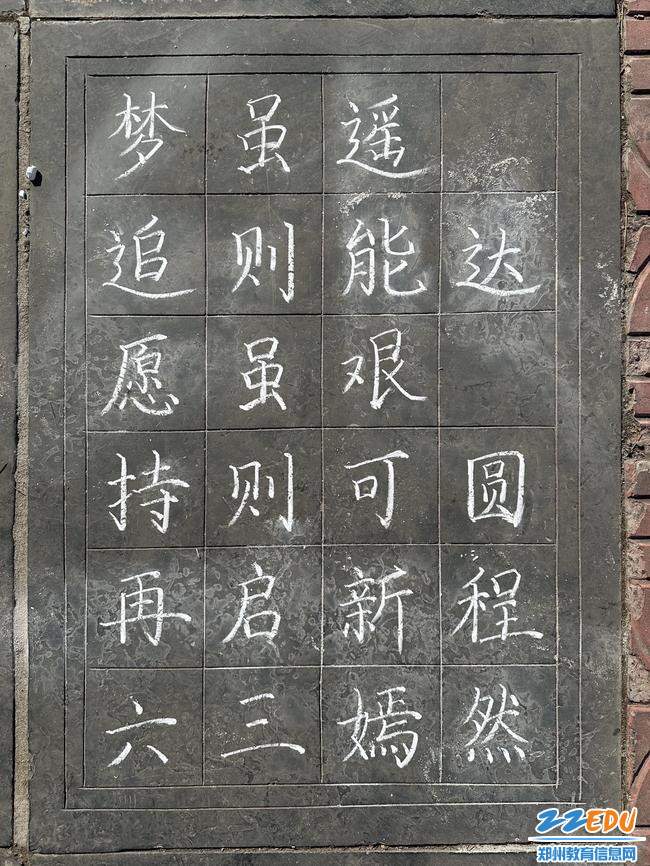 梦虽遥
追则能达
愿虽艰
持则可圆
再启新程
六三嫣然
ZZEDU
郑州教育信息网